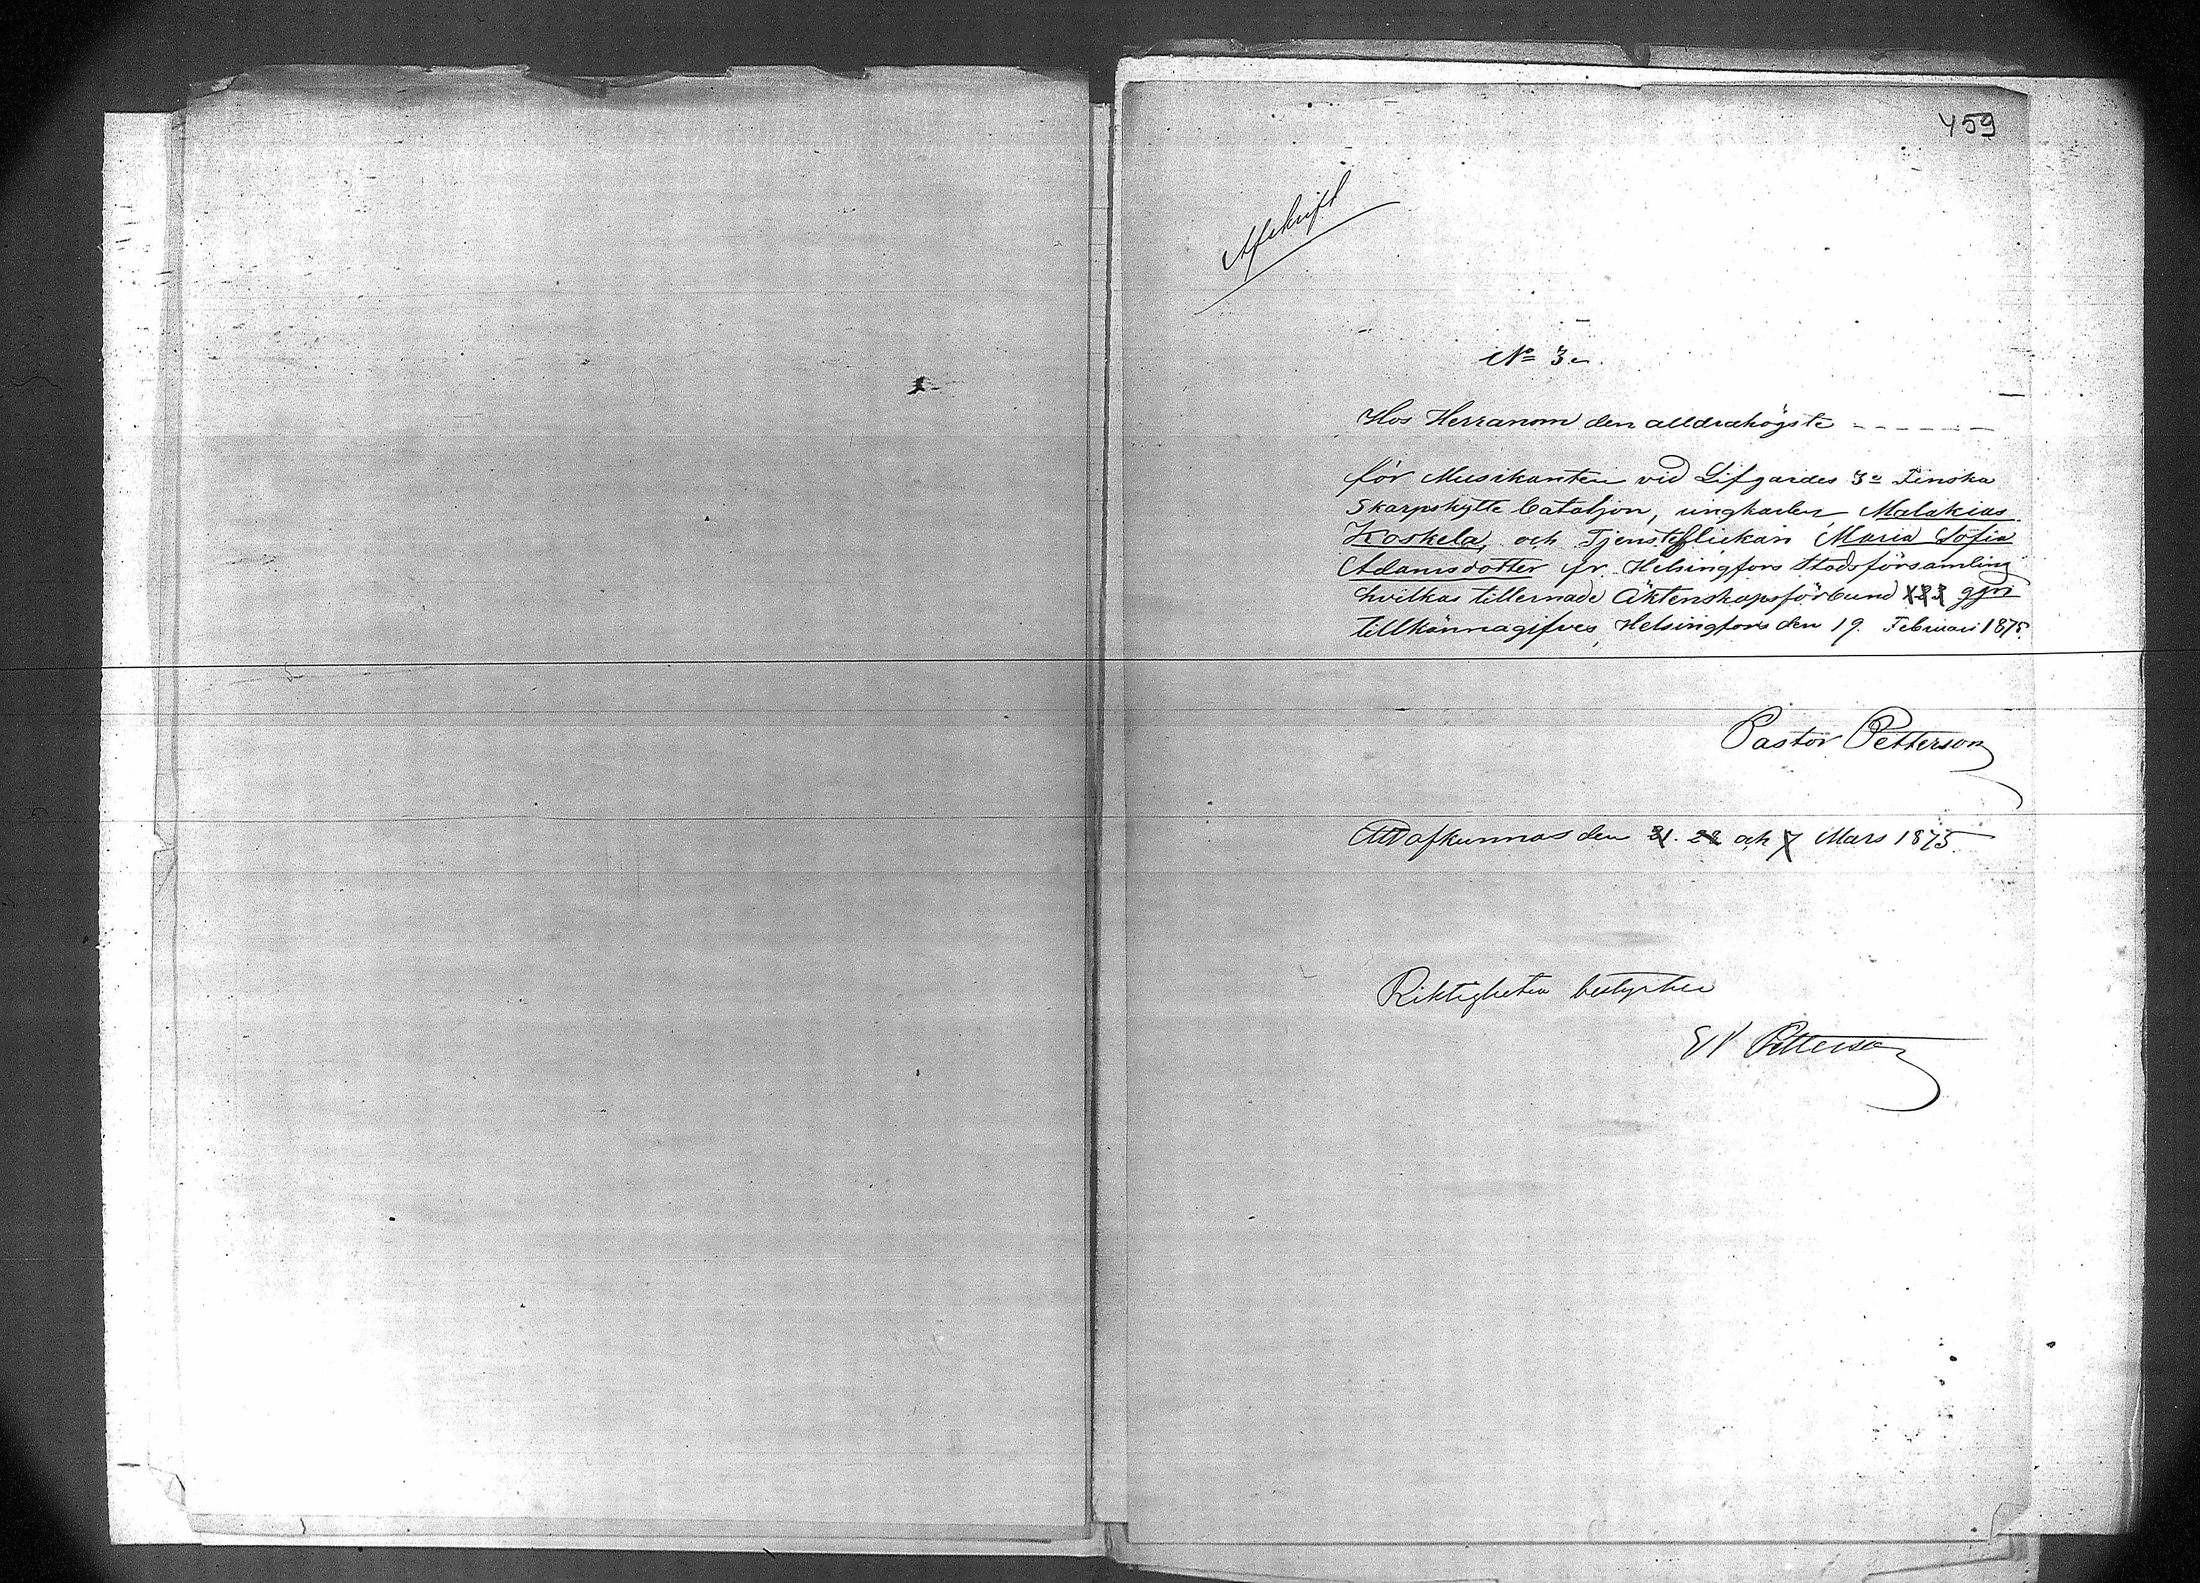 459
Afskrift
No 3.
Hos Herranom den alldrahögste - - - - - -
för Musikanten vid Lifgardes 3e Finska
Skarpskytte bataljon, ungkarlen Malakias
Koskela, och Tjensteflickan Maria Sofia
Adamsdotter fr. Helsingfors Stadsförsamling
hvilkas tillernade Äktenskapsförbund ggn
tillkännagifves, Helsingfors den 19. Februari 1875.
Pastor Petterson
Att afkunnas den 21. 28 och 7 Mars 1875.
Riktigheten bestyrker
Petterson